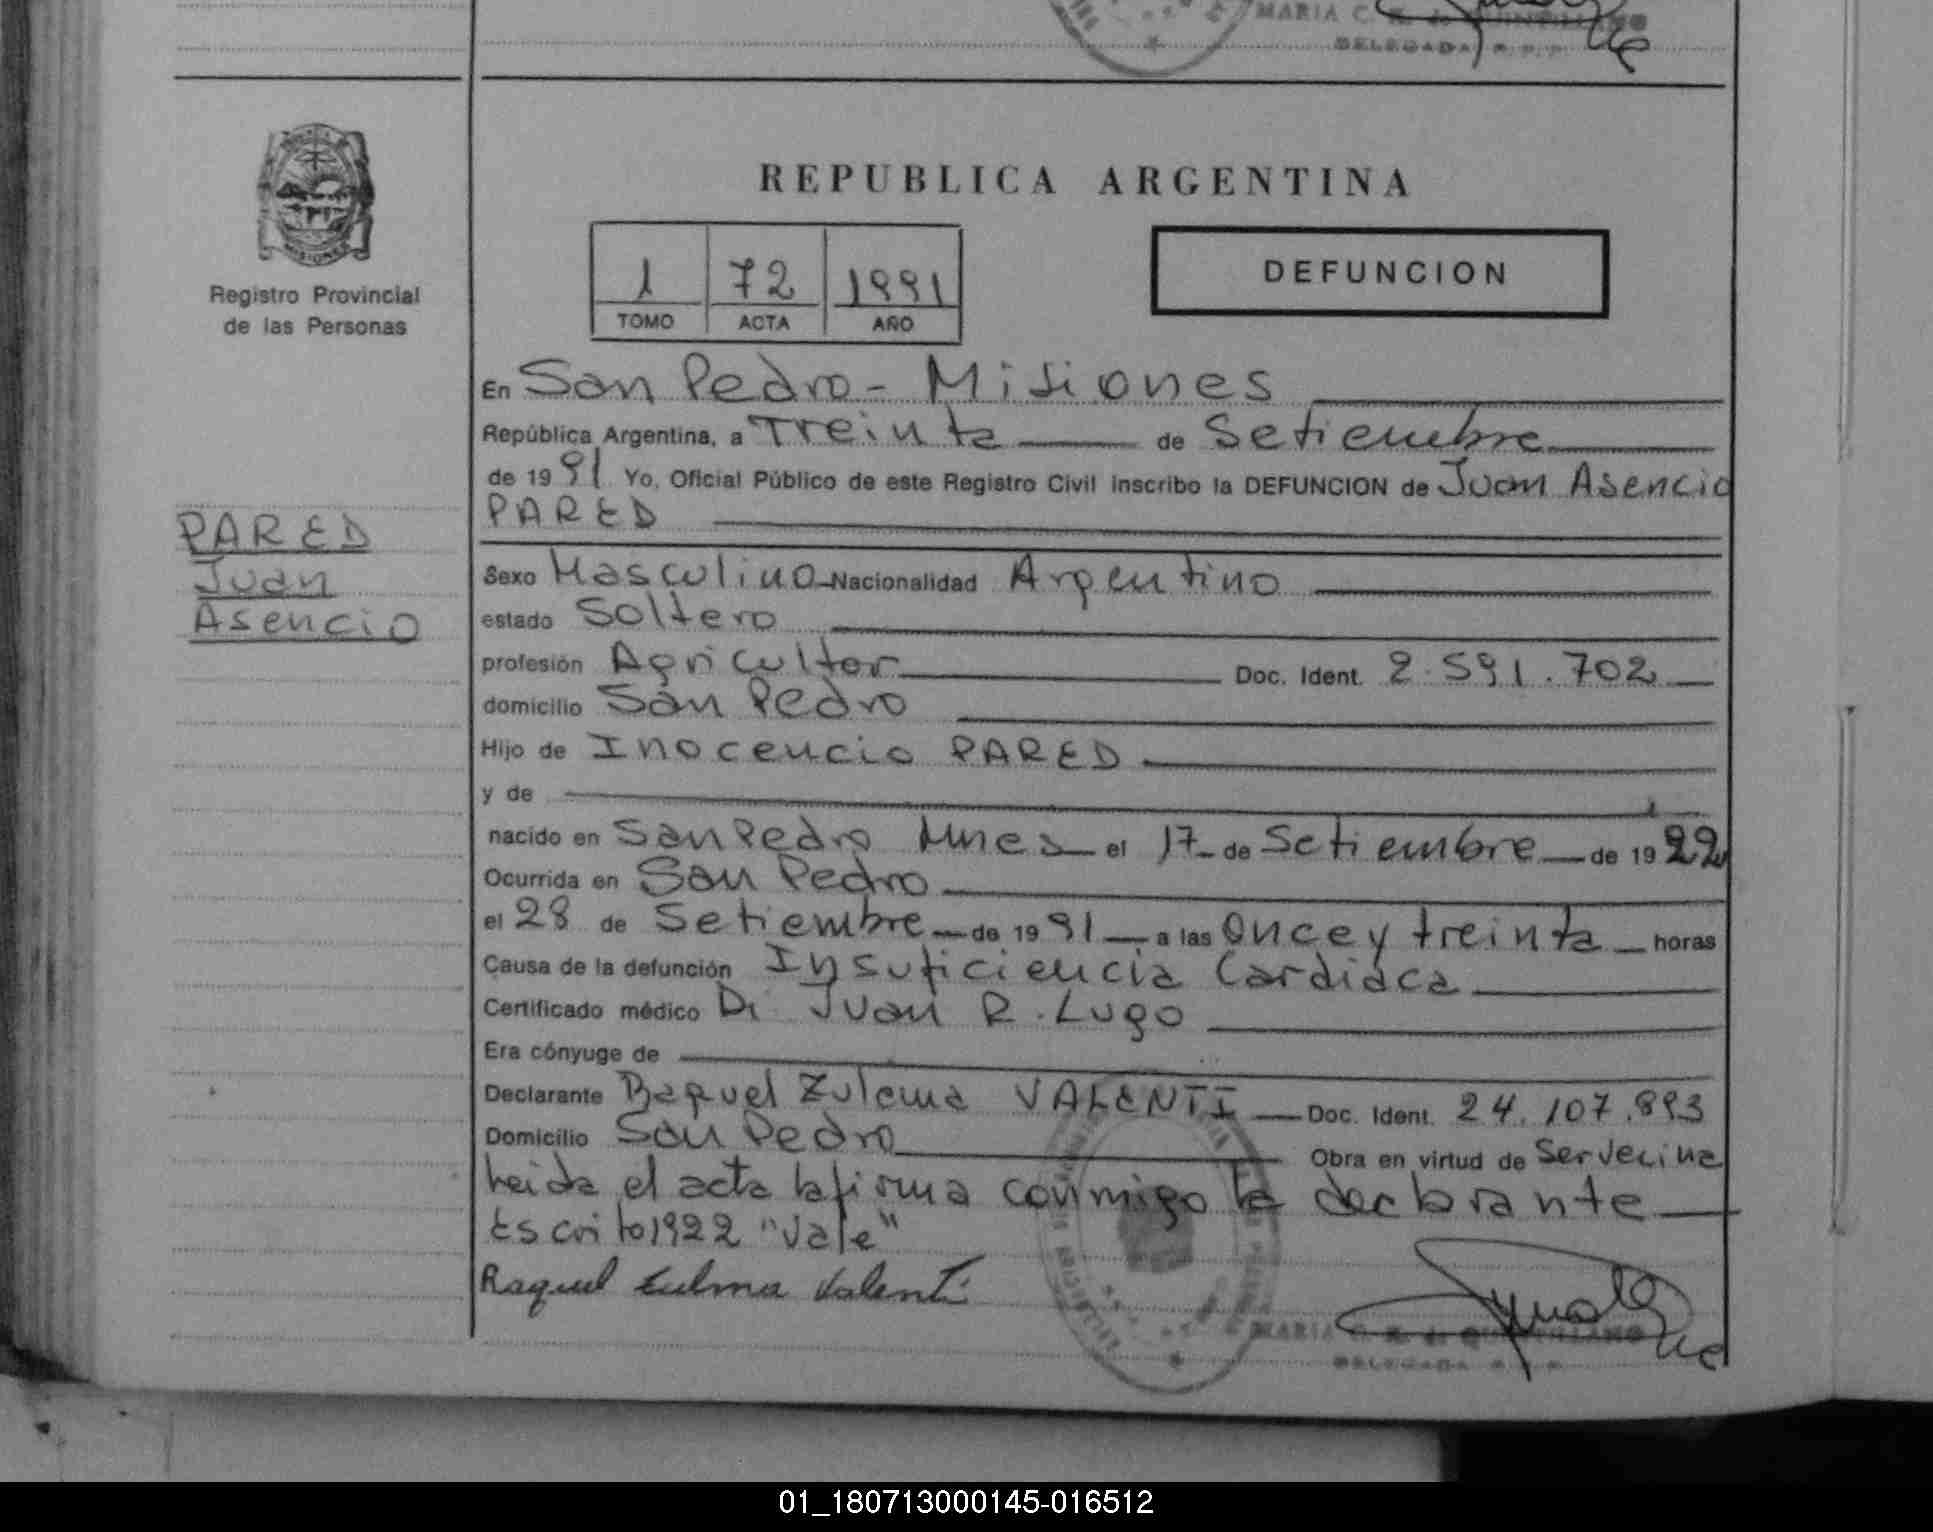 MARIA C. R. de QUINTILIANO
DELEGADA R.P.P.
MISIONES
Registro Provincial
de las Personas
REPUBLICA ARGENTINA
1 72 1991
TOMO ACTA AÑO
DEFUNCION
En San Pedro - Misiones
República Argentina, a Treinta de Setiembre
de 1991 Yo, Oficial Público de este Registro Civil inscribo la DEFUNCION de Juan Asencio
PARED
PARED
Juan
Asencio
Sexo Masculino Nacionalidad Argentino
estado Soltero
profesión Agricultor Doc. Ident. 2.591.702
domicilio San Pedro
Hijo de Inocencio PARED
y de
nacido en San Pedro Mnes el 17 de Setiembre de 1922
Ocurrida en San Pedro
el 28 de Setiembre de 1991 a las Once y treinta horas
Causa de la defunción Insuficiencia Cardiaca
Certificado médico Dr. Juan R. Lugo
Era cónyuge de
Declarante Raquel Zulema VALENTI Doc. Ident. 24.107.893
Domicilio San Pedro Obra en virtud de Ser vecina
Leida el acta la firma conmigo la declarante
Escrito 1922 "Vale"
Raquel Zulma Valenti
MARIA C. R. de QUINTILIANO
DELEGADA R.P.P.
01_180713000145-016512